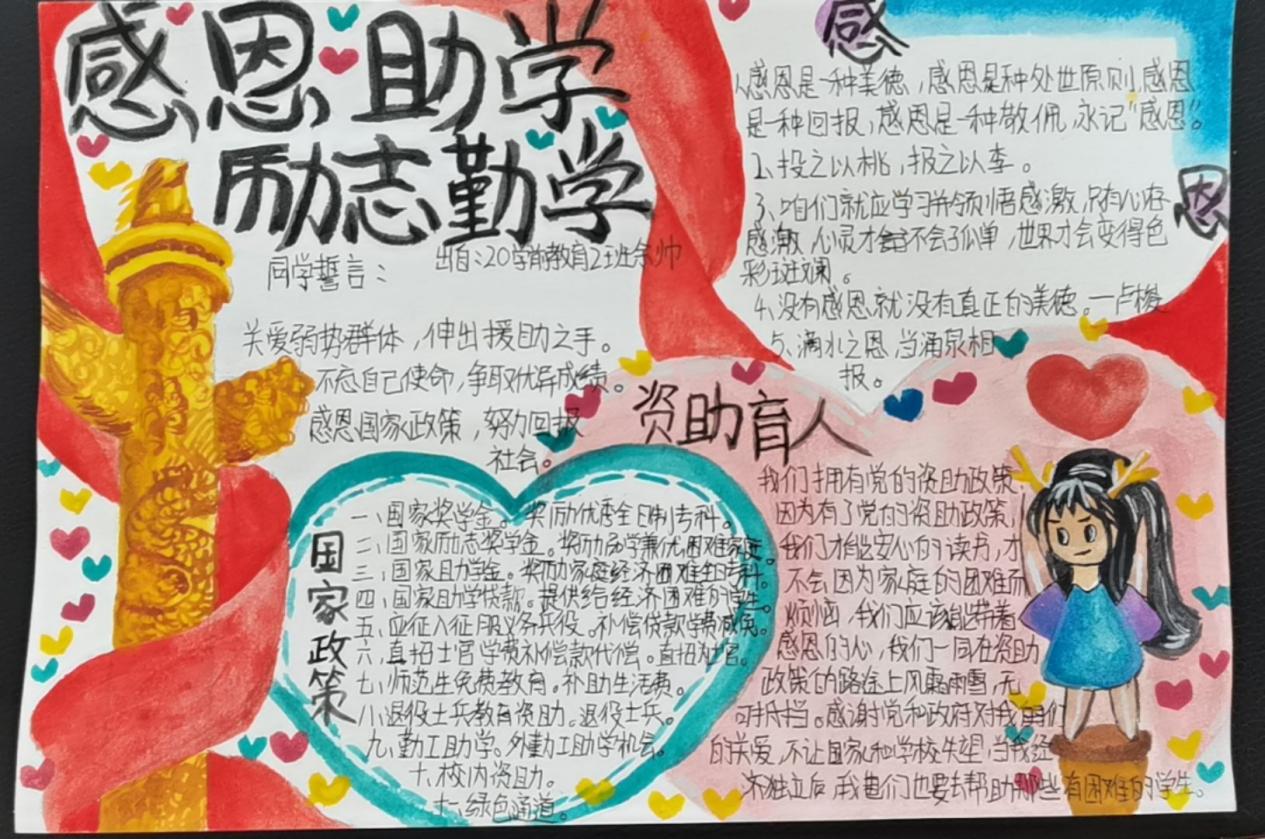 感恩助学
励志勤学
出自:20学前教育2班余帅
同学誓言:
关爱弱势群体,伸出援助之手。
不忘自己使命,争取优异成绩。
感恩国家政策,努力回报
社会。
感
恩
1、感恩是一种美德,感恩是种处世原则,感恩
是一种回报,感恩是一种敬佩,永记"感恩"。
2、投之以桃,报之以李。
3、咱们就应学习并领悟感激,只有心存
感激,心灵才会不会孤单,世界才会变得色
彩斑斓。
4、没有感恩就没有真正的美德。—卢梭
5、滴水之恩,当涌泉相
报。
国家政策
一、国家奖学金。奖励优秀全日制专科。
二、国家励志奖学金。奖励品学兼优困难家庭。
三、国家助学金。奖励家庭经济困难全日专科。
四、国家助学贷款。提供给经济困难的学生。
五、应征入征服义务兵役。补偿贷款学费减免。
六、直招士官学费补偿款代偿。直招为士官。
七、师范生免费教育。补助生活费。
八、退役士兵教育资助。退役士兵。
九、勤工助学。外勤工助学机会。
十、校内资助。
十一、绿色通道。
资助育人
我们拥有党的资助政策,
因为有了党的资助政策,
我们才能安心的读书,才
不会因为家庭的困难而
烦恼,我们应该能带着
感恩的心,我们一同在资助
政策的路途上风霜雨雪,无
可抵挡。感谢党和政府对我们
的关爱,不让国家和学校失望,当我经
济独立后,我们也要去帮助那些有困难的学生。